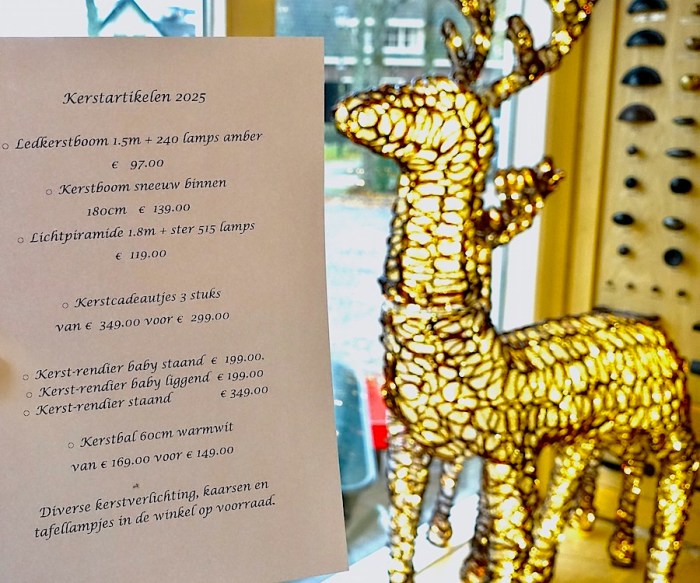 Kerstartikelen 2025
○ Ledkerstboom 1.5m + 240 lamps amber
€ 97.00
○ Kerstboom sneeuw binnen
180cm € 139.00
○ Lichtpiramide 1.8m + ster 515 lamps
€ 119.00
○ Kerstcadeautjes 3 stuks
van € 349.00 voor € 299.00
○ Kerst-rendier baby staand € 199.00.
○ Kerst-rendier baby liggend € 199.00
○ Kerst-rendier staand € 349.00
○ Kerstbal 60cm warmwit
van € 169.00 voor € 149.00
Diverse kerstverlichting, kaarsen en
tafellampjes in de winkel op voorraad.